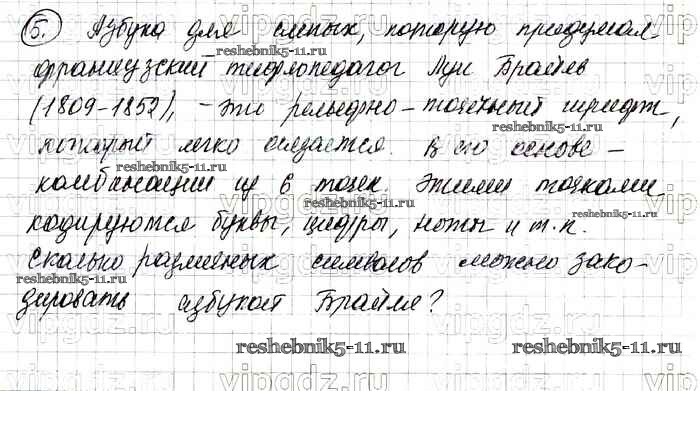 5. Азбука для слепых, которую придумал
французский тифлопедагог Луи Брайлев
(1809-1852), - это рельефно-точечный шрифт,
который легко осязается. В его основе -
комбинации из 6 точек. Этими точками
кодируются буквы, цифры, ноты и т.п.
Сколько различных символов можно зако-
дировать азбукой Брайля?
reshebnik5-11.ru
reshebnik5-11.ru
reshebnik5-11.ru
reshebnik5-11.ru
reshebnik5-11.ru
reshebnik5-11.ru
reshebnik5-11.ru
reshebnik5-11.ru
vipgdz.ru